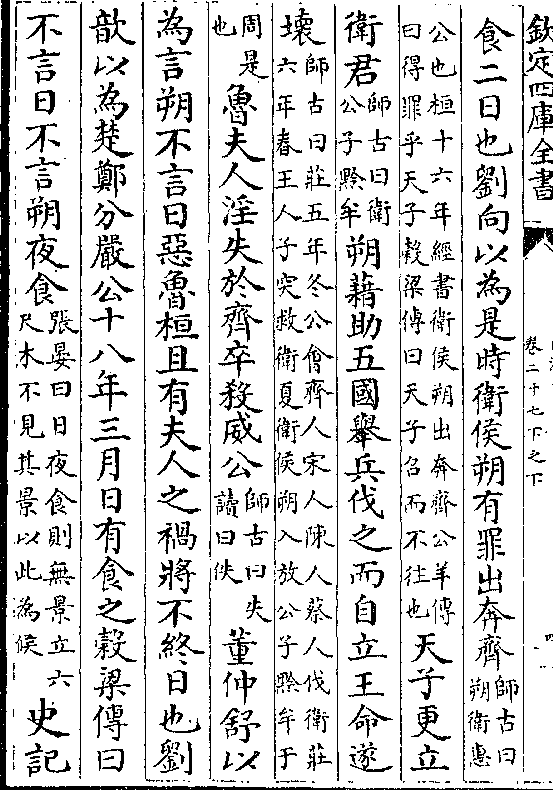 欽定四庫全書
卷二十七下之下
食二日也劉向以為是時衛侯朔有罪出奔齊師古曰朔衛惠
公也桓十六年經書衛侯朔出奔齊公羊傳曰得罪乎天子穀梁傳曰天子召而不往也天子更立
衛君師古曰衛公子黔牟朔藉助五國舉兵伐之而自立王命遂
壞師古曰莊五年冬公會齊人宋人陳人蔡人伐衛莊六年春王人子突救衛夏衛侯朔入放公子黔牟于
周是也魯夫人淫失於齊卒殺威公師古曰失讀曰佚董仲舒以
為言朔不言日惡魯桓且有夫人之禍將不終日也劉
歆以為楚鄭分嚴公十八年三月日有食之穀梁傳曰
不言日不言朔夜食張晏曰日夜食則無景立六尺木不見其景以此為候史記